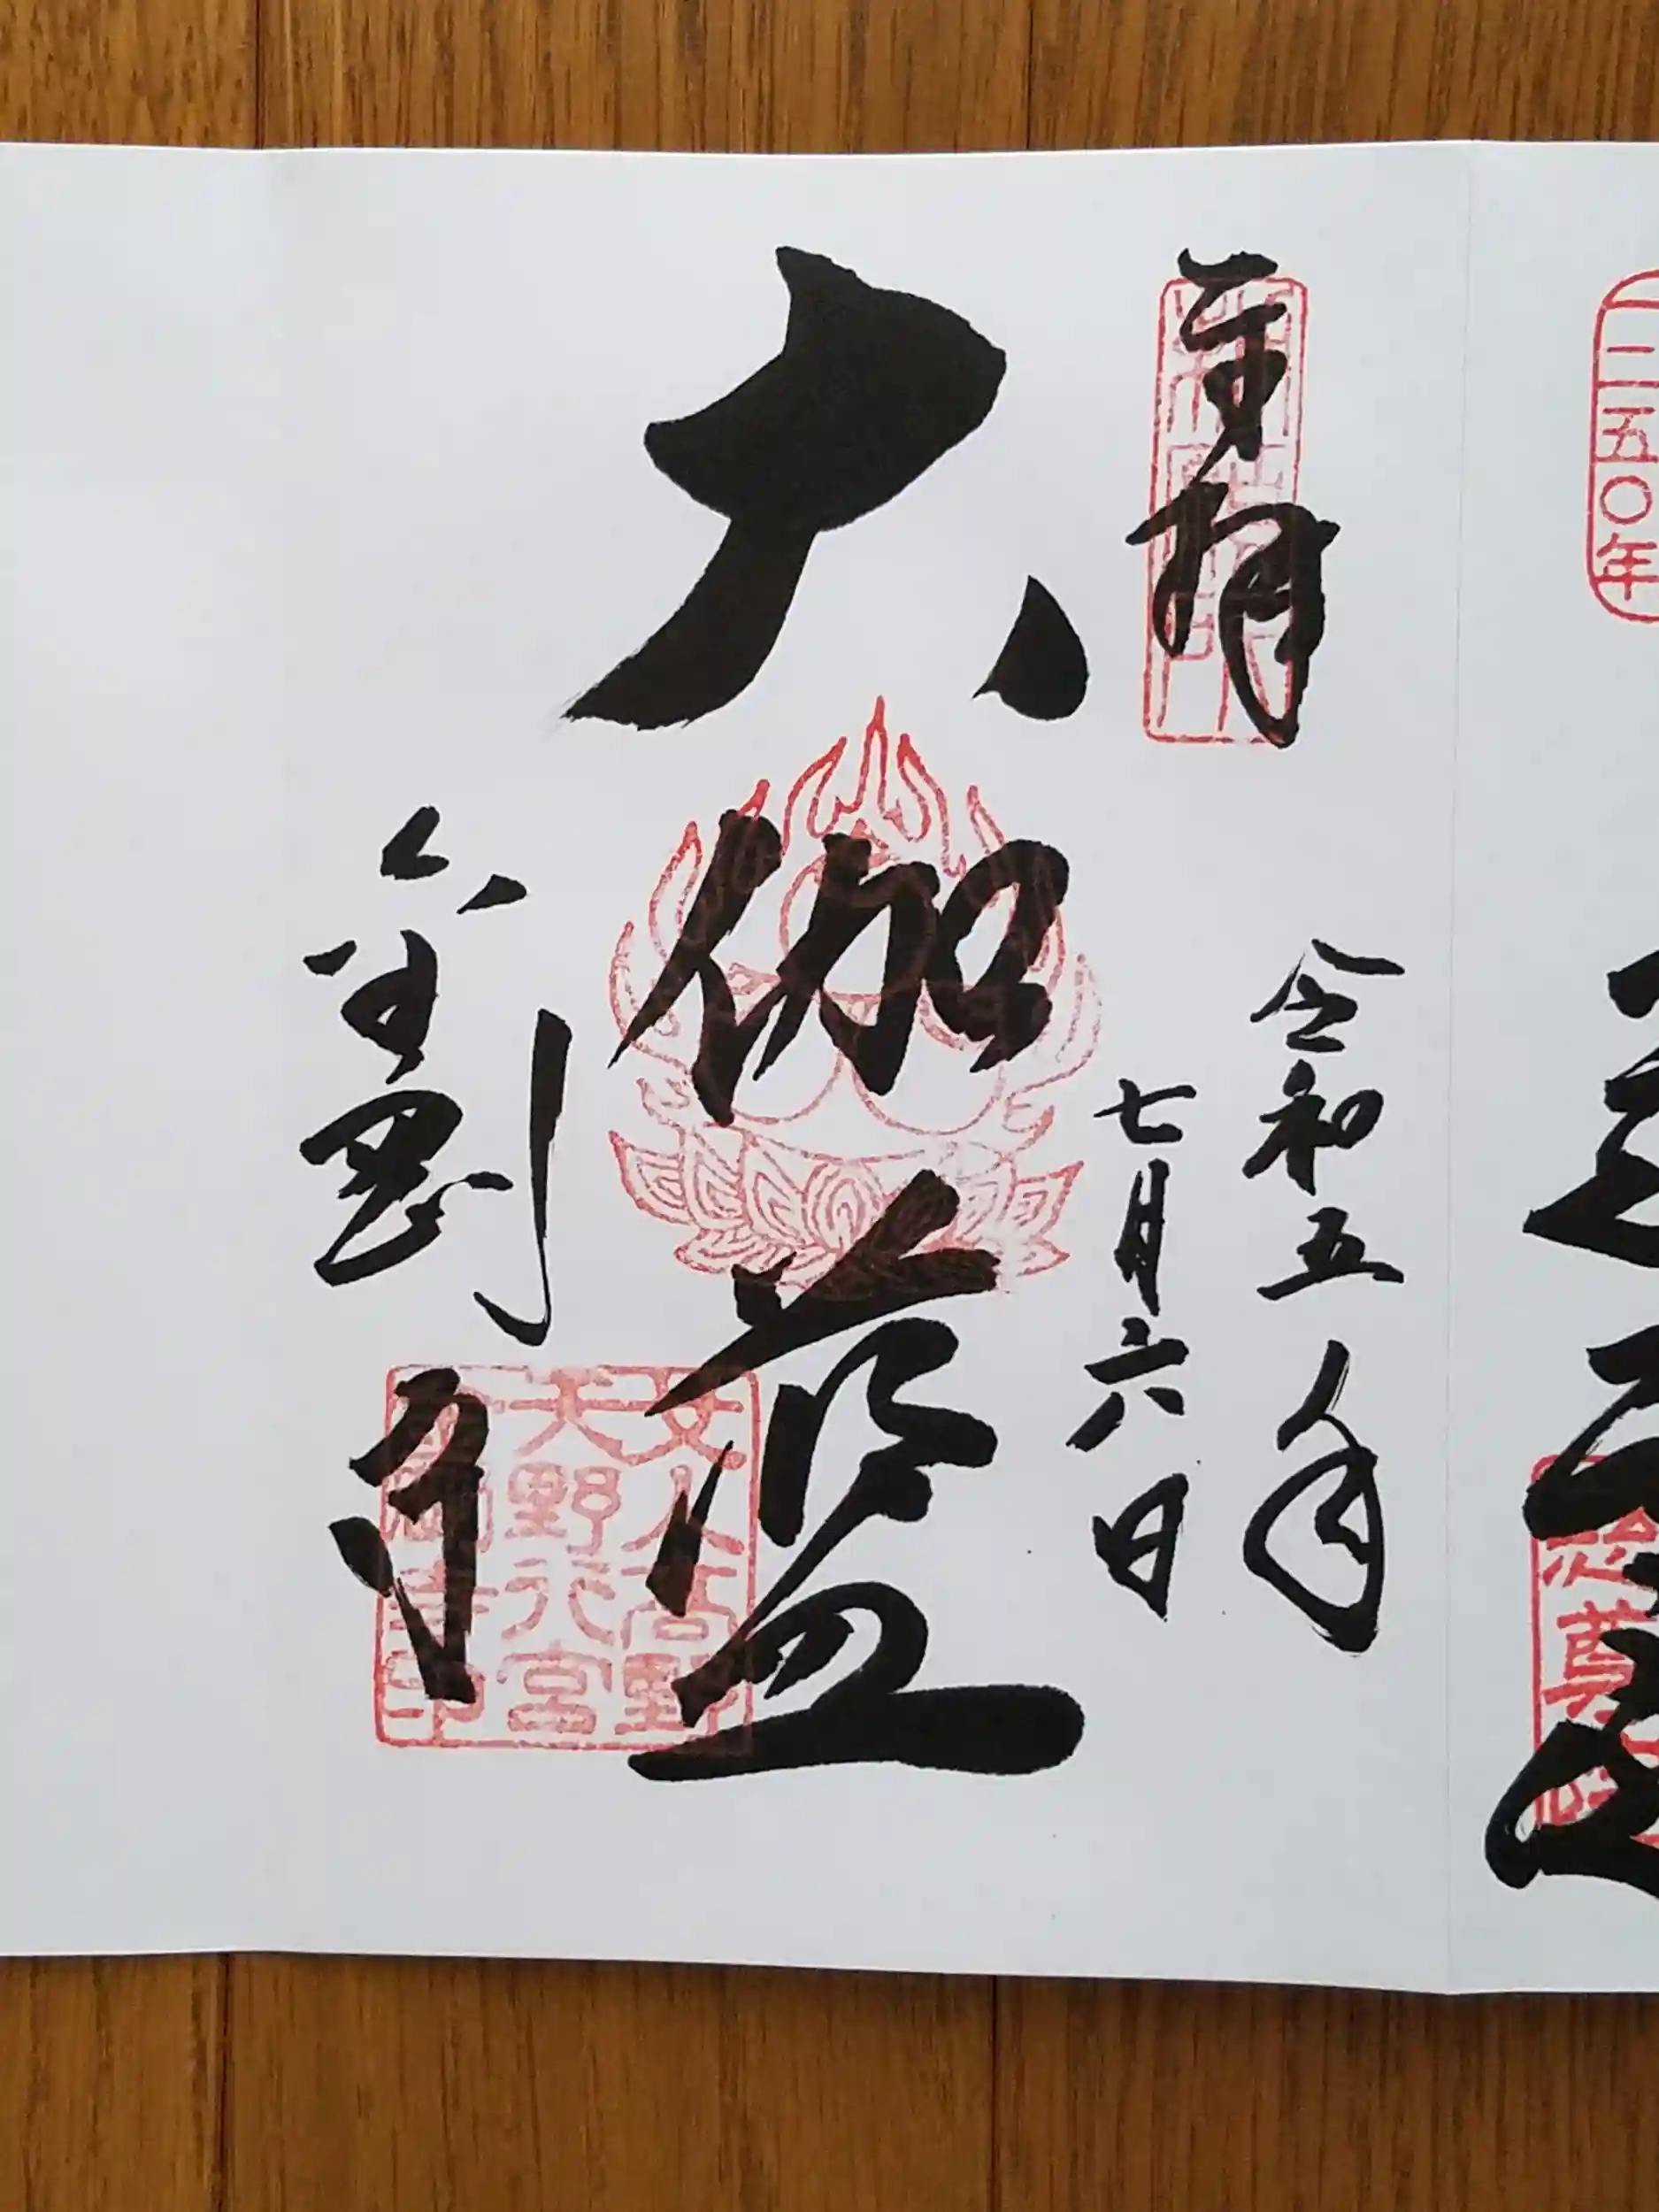 二五〇年
奉拝
令和五年
七月六日
大伽藍
金剛寺
女人高野
天野行宮
金剛寺印
尊